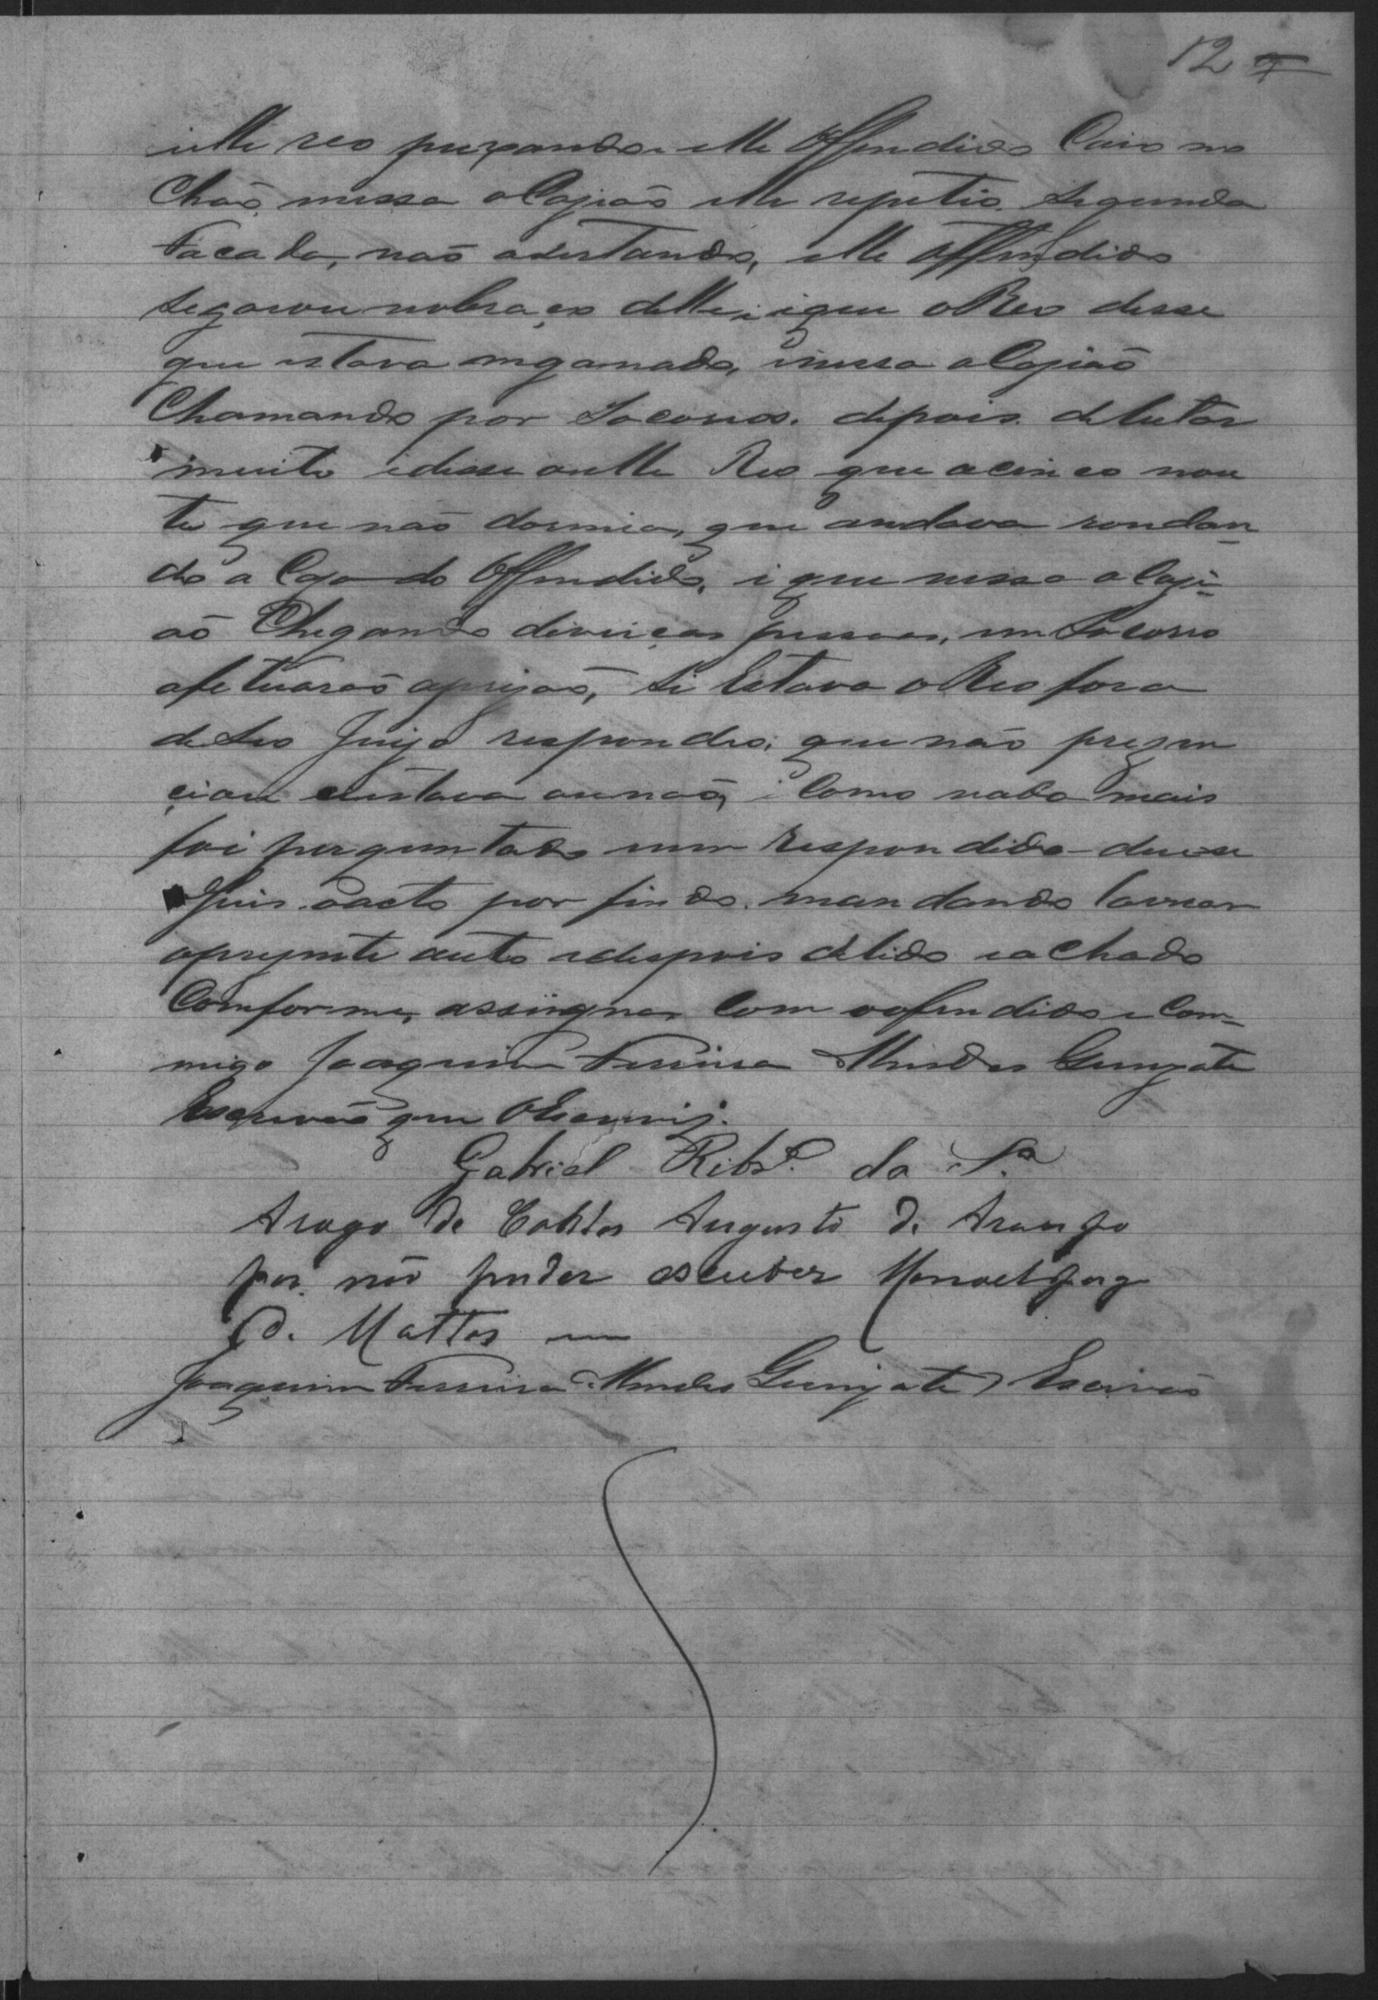 12 7
elle reo puxando elle Offendido Caio no
Chaõ, nessa ocajiaõ elle repetio Segunda
facada, naõ asertando, elle Offendido
Segarou no braço delle, i que o Reo disse
que estava enganado, i nessa ocajiaõ
Chamando por Socorros. depois de lutar
muito i disse a elle Reo que a cinco nou
te que naõ dormia, que andava rondan-
do a Caja do Offendido, i que nessa ocaji-
aõ Chegando diverças pessoas, em Socorro
afetuaraõ aprijaõ, Si Estava o Reo fora
de Seo Juijo respondeo, que não prezen
ciou se estava ou naõ, i Como nada mais
foi perguntado nem Respondido deu se
o Juis o acto por findo mandando lavrar
o prezente auto e depois de lido e achado
Comforme, assigna Com o ofendido e Com-
migo Joaquim Ferreira Mendes Gunzate
Escrivaõ que O Escrevij.
Gabriel Ribr.º da S.ª
Arogo de Carlos Augusto de Araujo
por não puder escuber Manoel Jorge
D. Mattos
Joaquim Ferreira Mendes Gunzate Escrivaõ